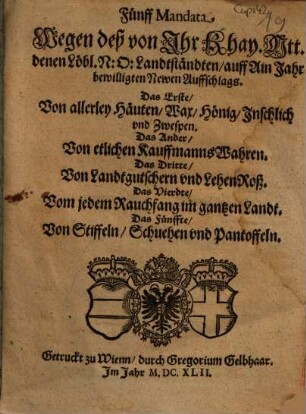 Fünff Mandata
Wegen deß von Ihr Khay. Mtt.
denen Löbl. N: O: Landtständten/ auff Ain Jahr
bewilligten Newen Auffschlags.
Das Erste/
Von allerley Häuten/ Wax/ Hönig/ Inschlich
vnd Zwespen.
Das Ander/
Von etlichen Kauffmanns Wahren.
Das Dritte/
Von Landtgutschern vnd Lehen Roß.
Das Vierdte/
Vom jedem Rauchfang im gantzen Landt.
Das Fünffte/
Von Stiffeln/ Schuehen vnd Pantoffeln.
Getruckt zu Wienn/ durch Gregorium Gelbhaar.
Im Jahr M. DC. XLII.